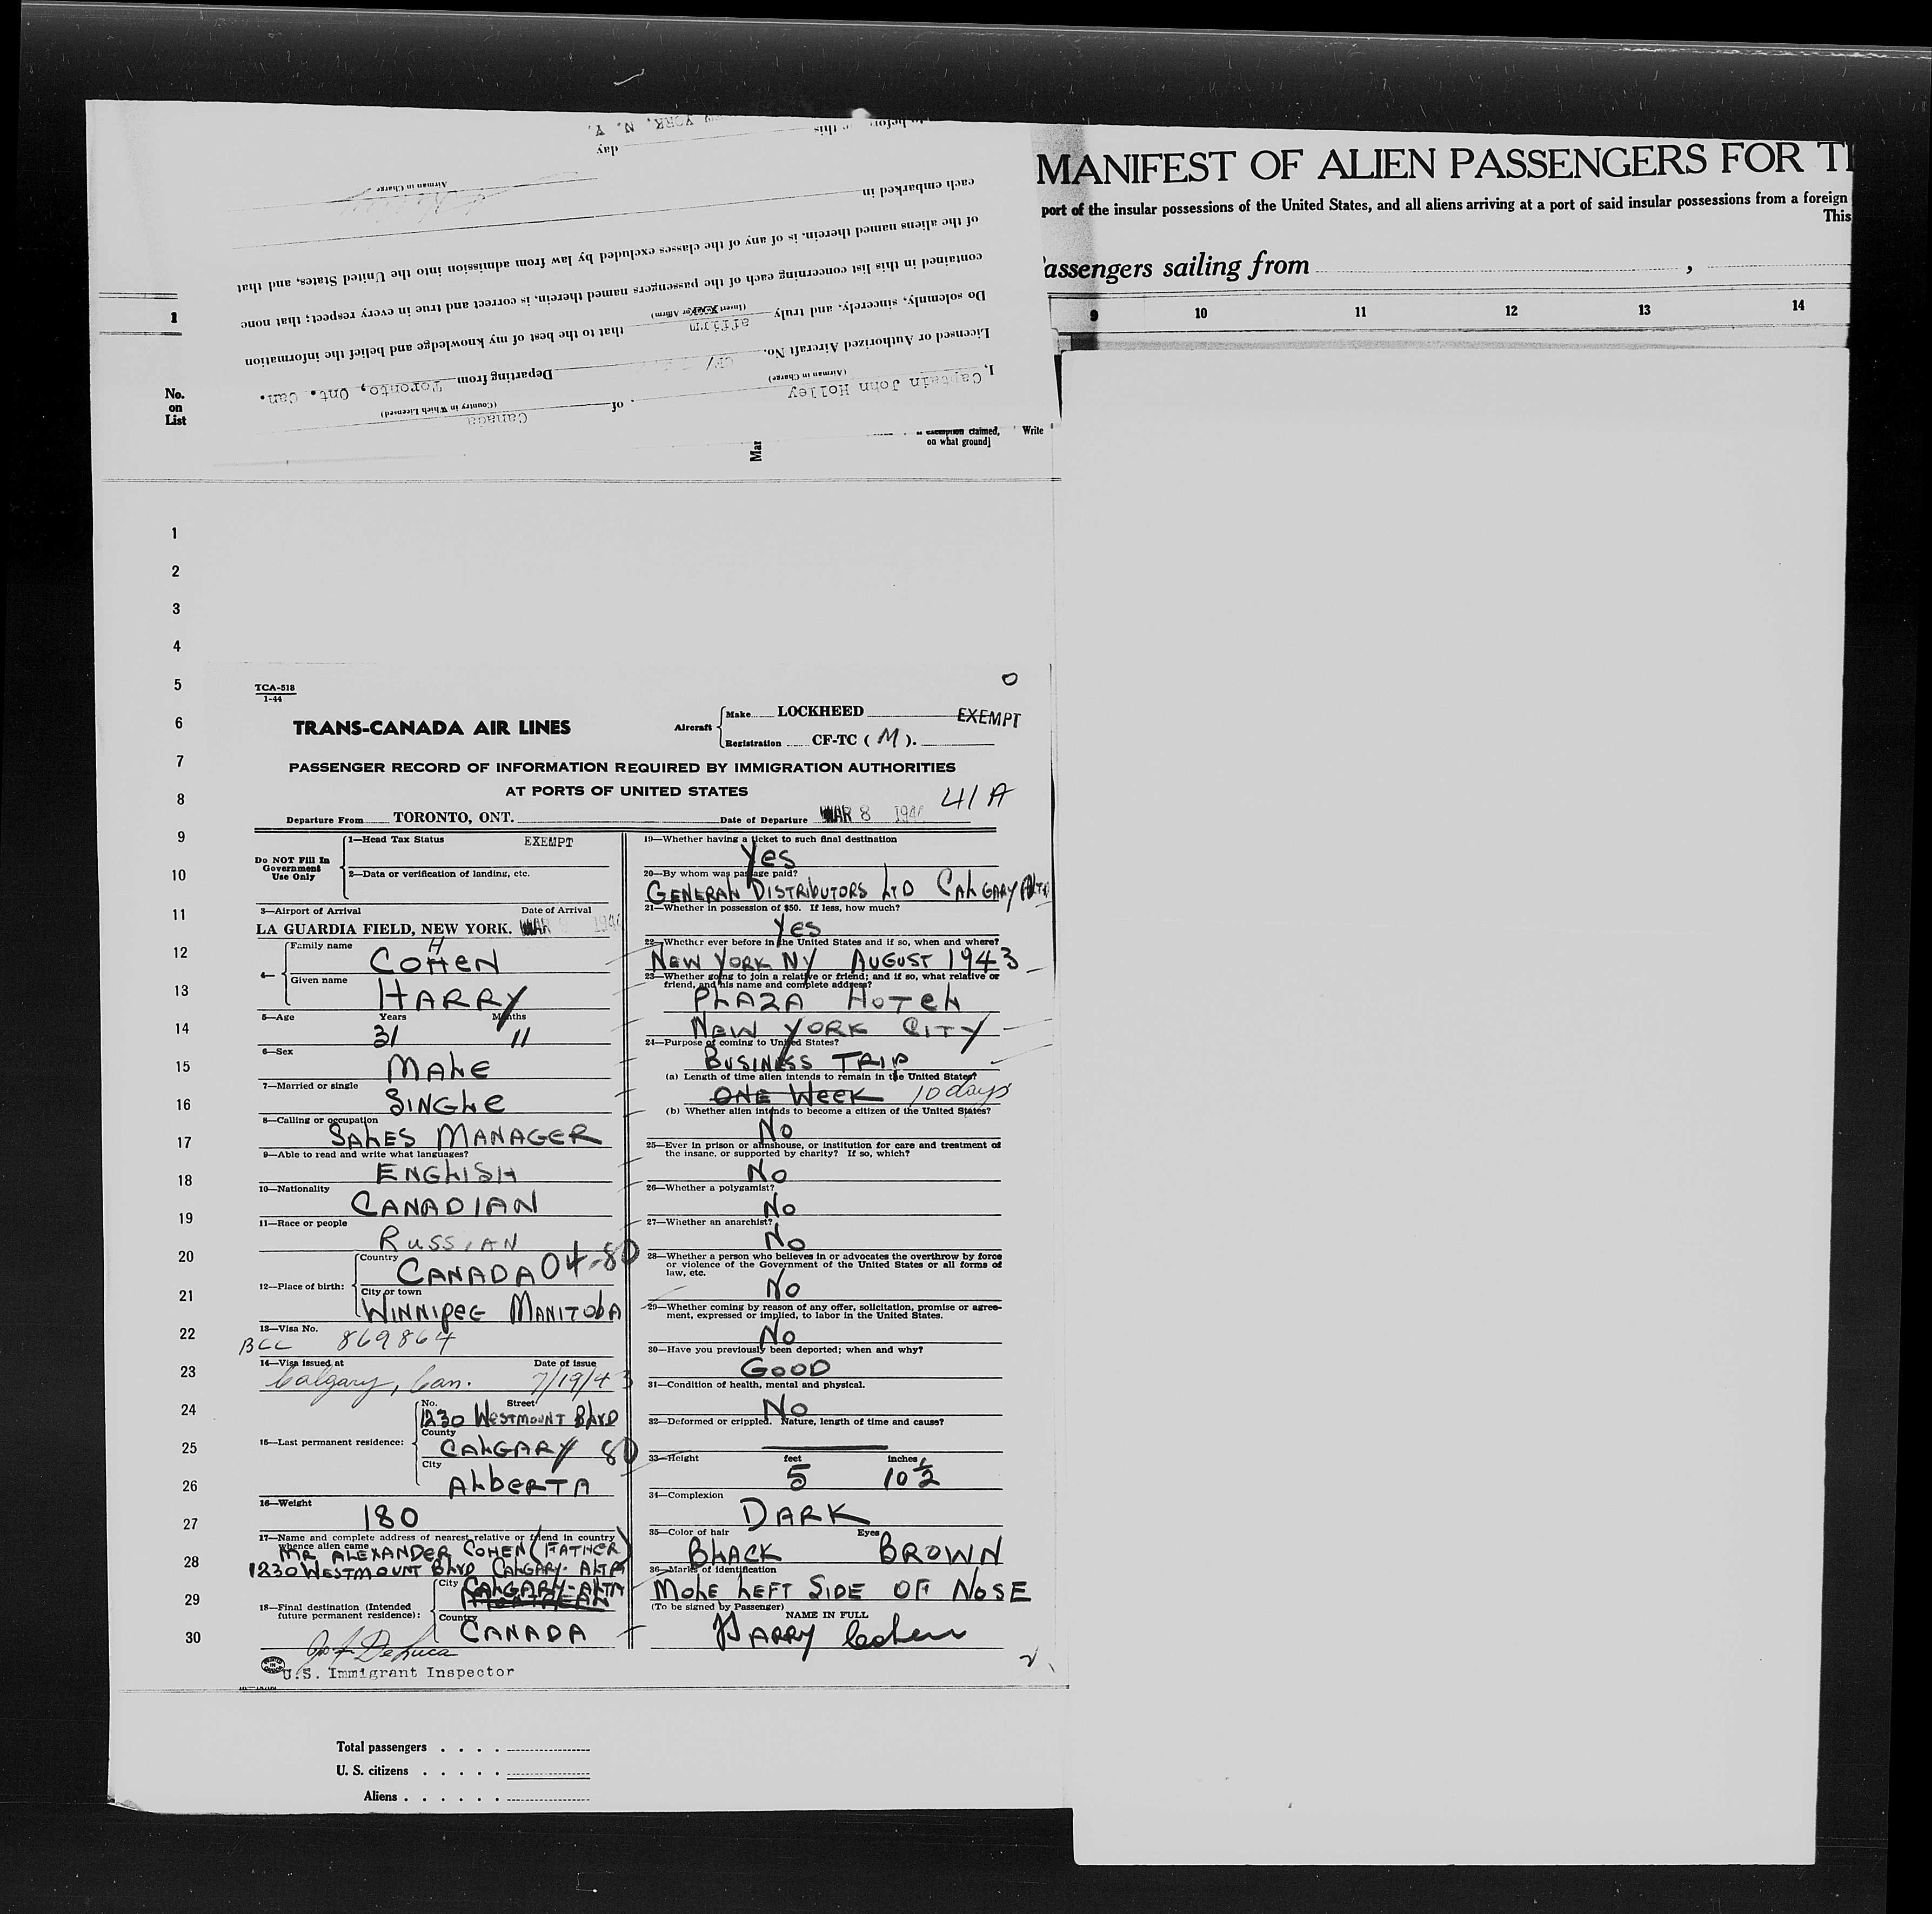 YORK, N. Y.
day
this
Airman in Charge
each embarked in
of the aliens named therein, is of any of the classes excluded by law from admission into the United States, and that
contained in this list concerning each of the passengers named therein, is correct and true in every respect; that none
Do solemnly, sincerely, and truly affirm that to the best of my knowledge and belief the information
Licensed or Authorized Aircraft No. CF/ Departing from Toronto, Ont. Can.
(Airman in Charge) (Country in Which Licensed)
I, Captain John Holley of Canada
1
No.
on
List
exemption claimed,
on what ground]
Write
Mar
MANIFEST OF ALIEN PASSENGERS FOR T
port of the insular possessions of the United States, and all aliens arriving at a port of said insular possessions from a foreign
This
assengers sailing from ,
9 10 11 12 13 14
1
2
3
4
5
6
7
8
9
10
11
12
13
14
15
16
17
18
19
20
21
22
23
24
25
26
27
28
29
30
TCA-518
1-44
O
TRANS-CANADA AIR LINES
Aircraft
Make LOCKHEED
EXEMPT
Registration CF-TC ( M ).
PASSENGER RECORD OF INFORMATION REQUIRED BY IMMIGRATION AUTHORITIES
AT PORTS OF UNITED STATES
41A
Departure From TORONTO, ONT. Date of Departure MAR 8
Do NOT Fill In
Government
Use Only
1—Head Tax Status EXEMPT
2—Data or verification of landing, etc.
3—Airport of Arrival Date of Arrival
LA GUARDIA FIELD, NEW YORK. MAR
4—
Family name
H
COHEN
Given name
HARRY
5—Age Years Months
31 11
6—Sex
MALE
7—Married or single
SINGLE
8—Calling or occupation
SALES MANAGER
9—Able to read and write what languages?
ENGLISH
10—Nationality
CANADIAN
11—Race or people
RUSSIAN
12—Place of birth:
Country
CANADA 04-80
City or town
WINNIPEG MANITOBA
13—Visa No.
BCC 869864
14—Visa issued at Date of issue
Calgary, Can. 7/19/43
15—Last permanent residence:
No. Street
1230 WESTMOUNT BLVD
County
CALGARY 80
City
ALBERTA
16—Weight
180
17—Name and complete address of nearest relative or friend in country
whence alien came
MR ALEXANDER COHEN (FATHER)
1230 WESTMOUNT BLVD CALGARY-ALTA
18—Final destination (Intended
future permanent residence):
City
CALGARY-ALTA
MONTREAL
Country
CANADA
Jos F DeLuca
U.S. Immigrant Inspector
19—Whether having a ticket to such final destination
Yes
20—By whom was passage paid?
GENERAL DISTRIBUTORS LTD CALGARY ALTA
21—Whether in possession of $50. If less, how much?
Yes
22—Whether ever before in the United States and if so, when and where?
NEW YORK NY AUGUST 1943
23—Whether going to join a relative or friend; and if so, what relative or
friend, and his name and complete address?
PLAZA HOTEL
NEW YORK CITY
24—Purpose of coming to United States?
BUSINESS TRIP
(a) Length of time alien intends to remain in the United States?
ONE WEEK 10 days
(b) Whether alien intends to become a citizen of the United States?
No
25—Ever in prison or almshouse, or institution for care and treatment of
the insane, or supported by charity? If so, which?
No
26—Whether a polygamist?
No
27—Whether an anarchist?
No
28—Whether a person who believes in or advocates the overthrow by force
or violence of the Government of the United States or all forms of
law, etc.
No
29—Whether coming by reason of any offer, solicitation, promise or agree-
ment, expressed or implied, to labor in the United States.
No
30—Have you previously been deported; when and why?
GOOD
31—Condition of health, mental and physical.
No
32—Deformed or crippled. Nature, length of time and cause?
33—Height feet inches
5 10 1/2
34—Complexion
DARK
35—Color of hair Eyes
BLACK BROWN
36—Marks of identification
MOLE LEFT SIDE OF NOSE
(To be signed by Passenger)
NAME IN FULL
HARRY Cohen
Total passengers . . . .
U. S. citizens . . . . .
Aliens . . . . . .